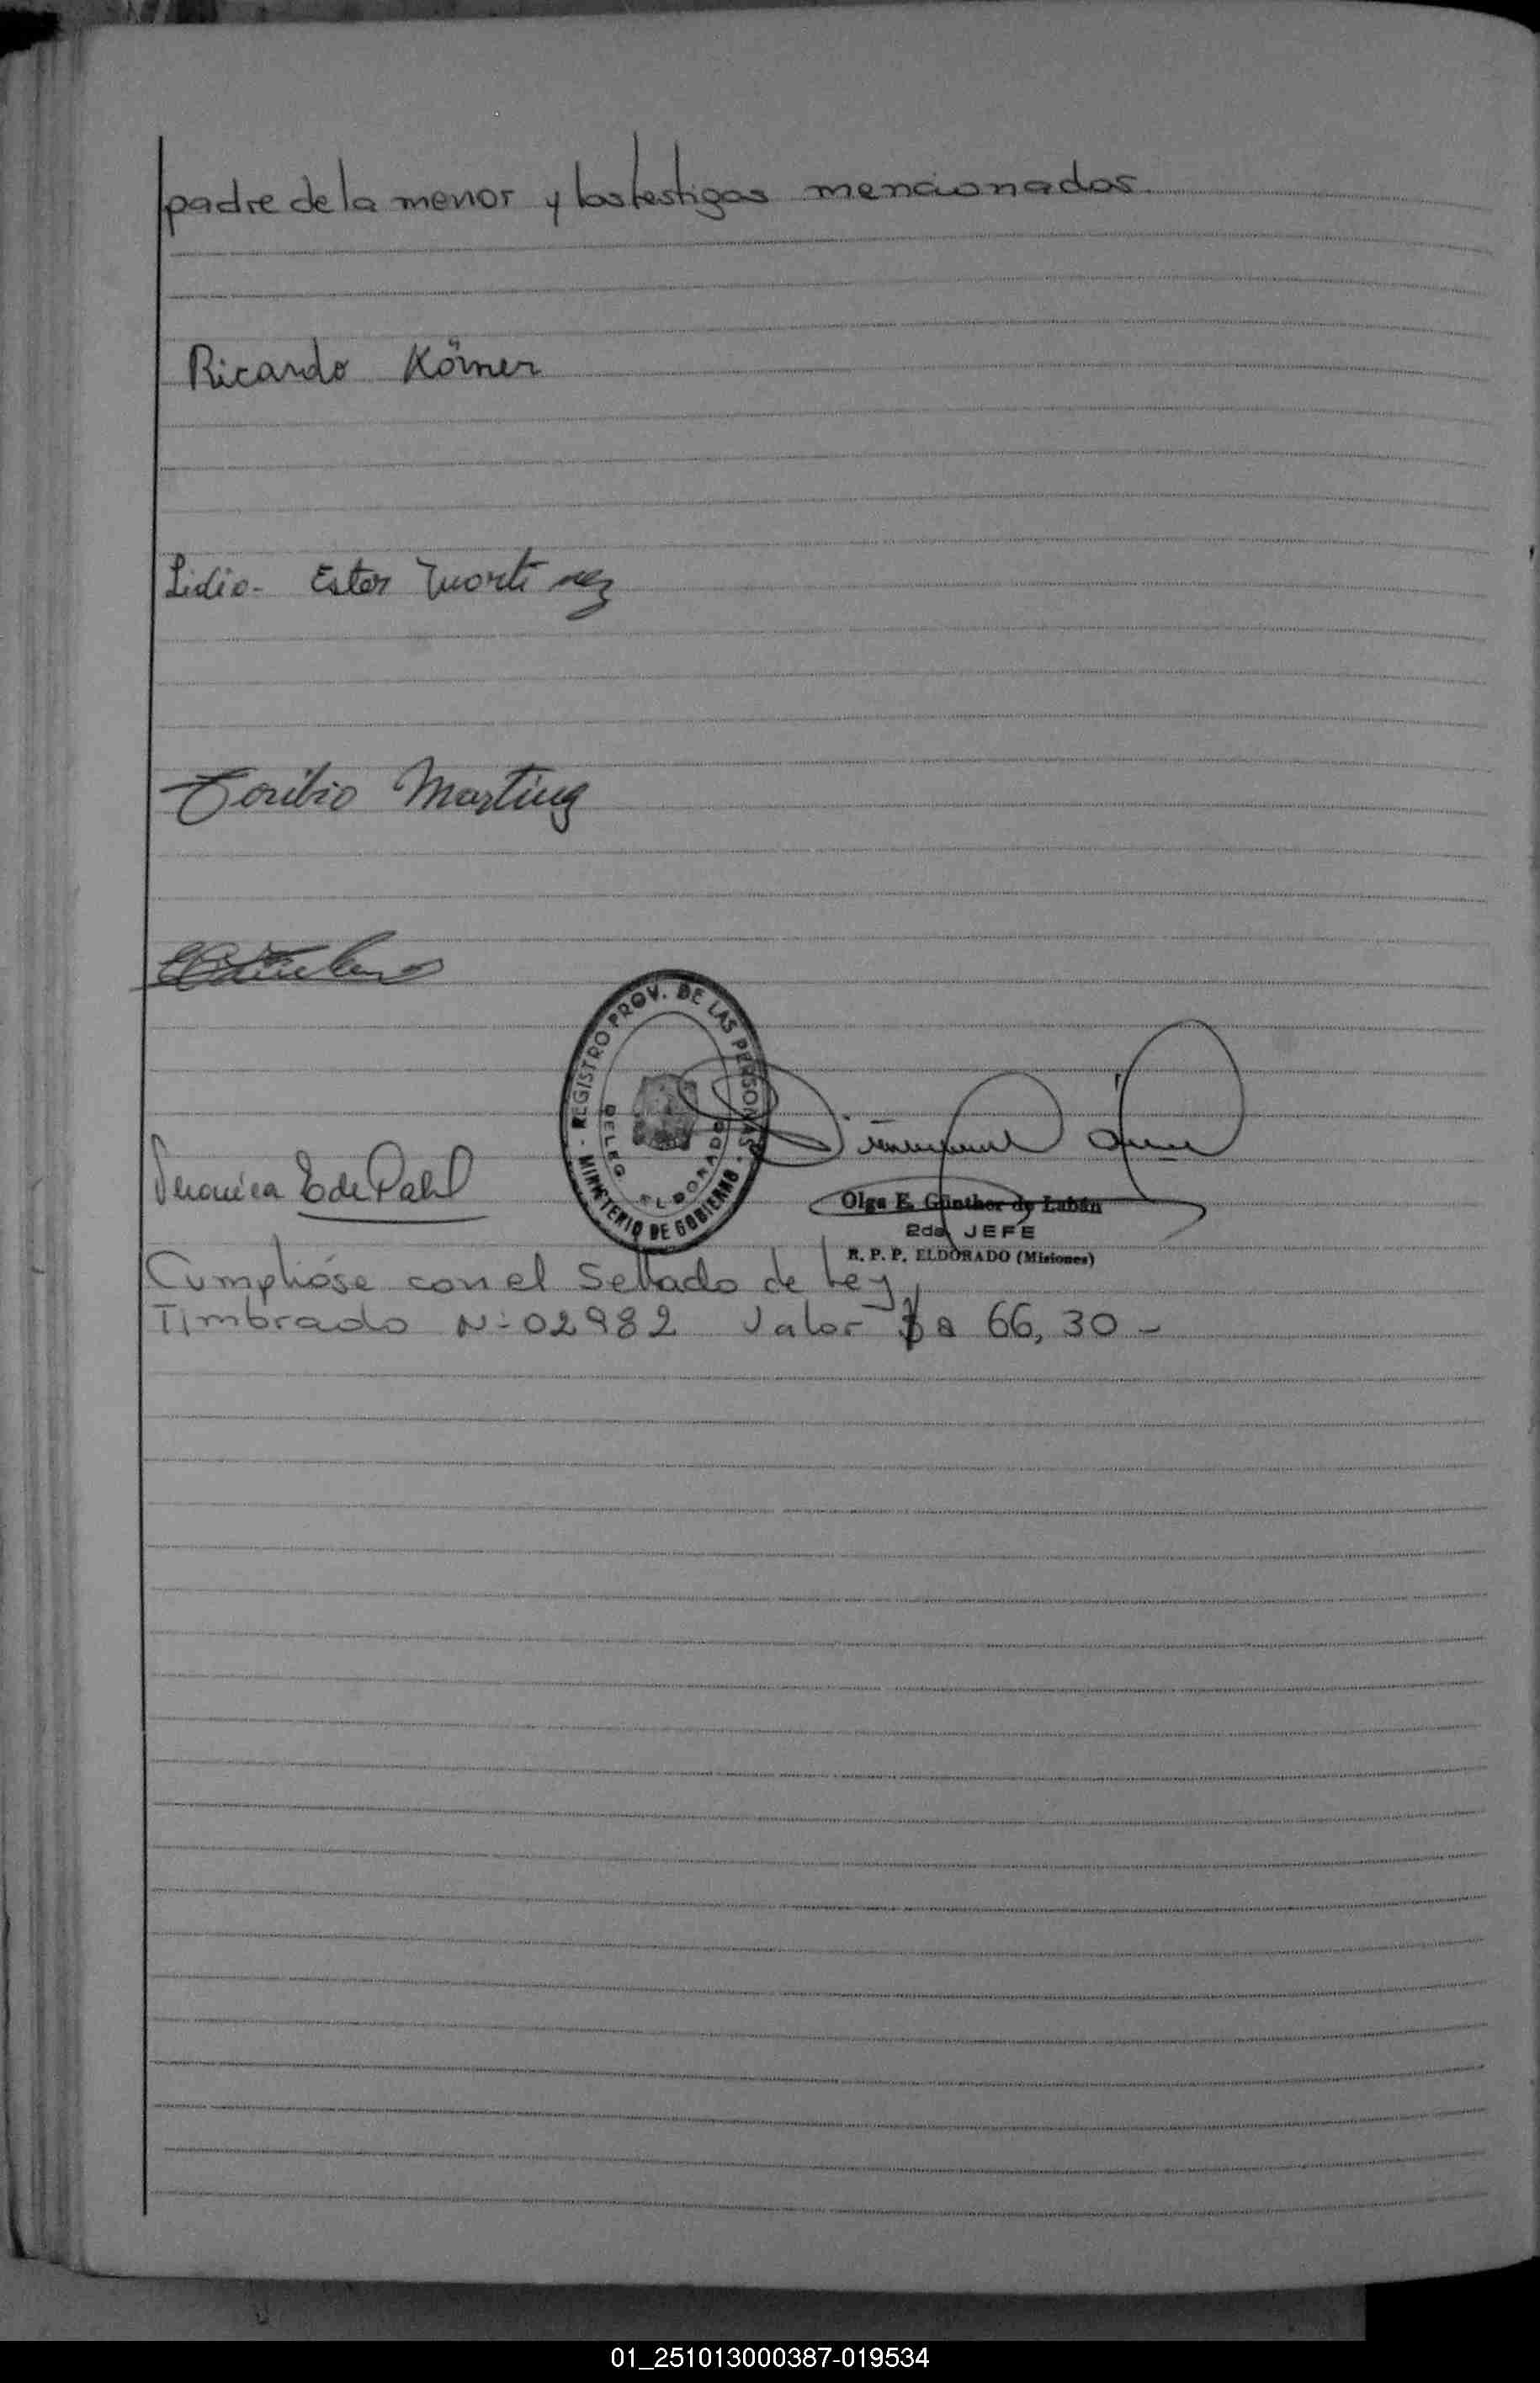 padre de la menor y los testigos mencionados.
Ricardo Körner
Lidia Ester Martinez
Toribio Martinez
REGISTRO PROV. DE LAS PERSONAS - MINISTERIO DE GOBIERNO -
DELEG. ELDORADO
Veronica E de Pahl
Olga E. Günther de Labán
2da JEFE
R. P. P. ELDORADO (Misiones)
Cumplióse con el Sellado de Ley,
Timbrado Nº 02982 Valor $a 66,30 -
01_251013000387-019534